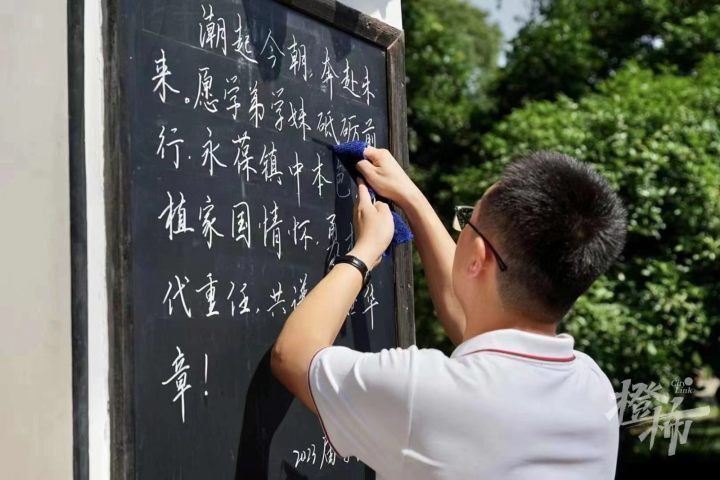 潮起今朝，奔赴未
来。愿学弟学妹砥砺前
行，永葆镇中本色
植家国情怀，勇
代重任，共谱 华
章！
2023届
City Link
橙柿